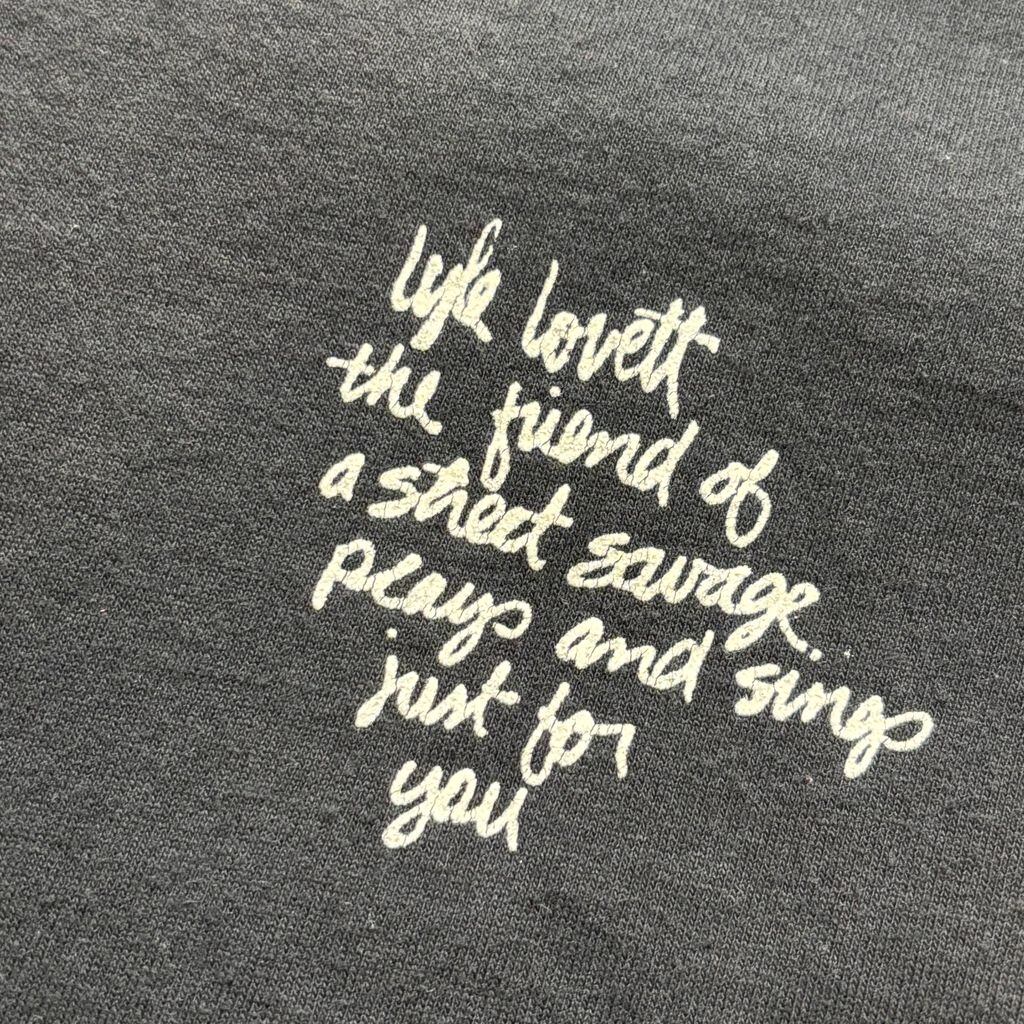 Lyle Lovett
the friend of
a street savage.
plays and sings
just for
you